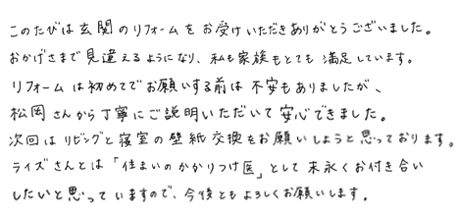 このたびは玄関のリフォームをお受けいただきありがとうございました。
おかげさまで見違えるようになり、私も家族もとても満足しています。
リフォームは初めてでお願いする前は不安もありましたが、
松岡さんから丁寧にご説明いただいて安心できました。
次回はリビングと寝室の壁紙交換をお願いしようと思っております。
ライズさんとは「住まいのかかりつけ医」として末永くお付き合い
したいと思っていますので、今後ともよろしくお願いします。